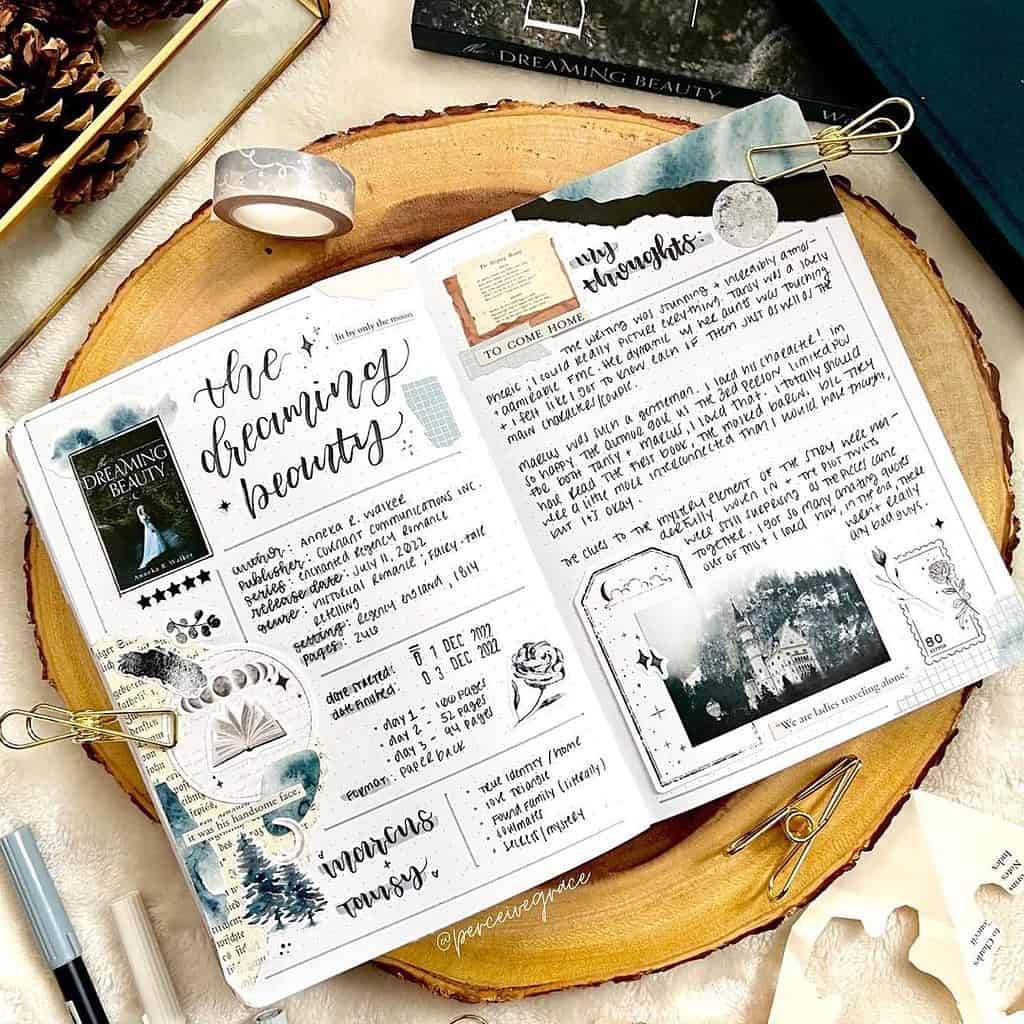 DREAMING BEAUTY
the
lit by only the moon
the
dreaming
beauty
DREAMING
BEAUTY
Anneka R. Walker
author: Anneka R. Walker
publisher: Covenant Communications Inc.
series: enchanted regency romance
release date: July 11, 2022
genre: historical romance, fairy-tale
retelling
setting: regency england, 1814
pages: 246
date started: 01 DEC 2022
date finished: 03 DEC 2022
• day 1 - 100 pages
• day 2 - 52 pages
• day 3 - 94 pages
format: paperback
it was his handsome face,
marcus
+
tansy
• true identity/home
• love triangle
• found family (literally)
• soulmates
• secrets/mystery
TO COME HOME
my
thoughts:
the writing was stunning + incredibly atmos-
pheric; I could really picture everything. Tansy was a lovely
+ admirable FMC. Her dynamic w/ her aunts was touching
+ I felt like I got to know each of them just as well as the
main character/couple.
Marcus was such a gentleman. I loved his character! Im
so happy the author gave us the 3rd person limited POV
for both Tansy + Marcus, I loved that. I totally should
have read The Masked Baron, bc they
were a little more interconnected than I would have thought,
but it's okay.
The clues to the mystery element of the story were won-
derfully woven in + the plot twists
were still surprising as the pieces came
together. I got so many amazing quotes
out of this + I loved how, in the end, there
weren't really
any bad guys.
80
"We are ladies traveling alone.
@perceivegrace